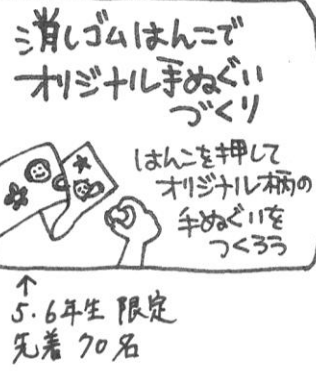 消しゴムはんこで
オリジナル手ぬぐい
づくり
はんこを押して
オリジナル柄の
手ぬぐいを
つくろう
↑
5.6年生 限定
先着 70名